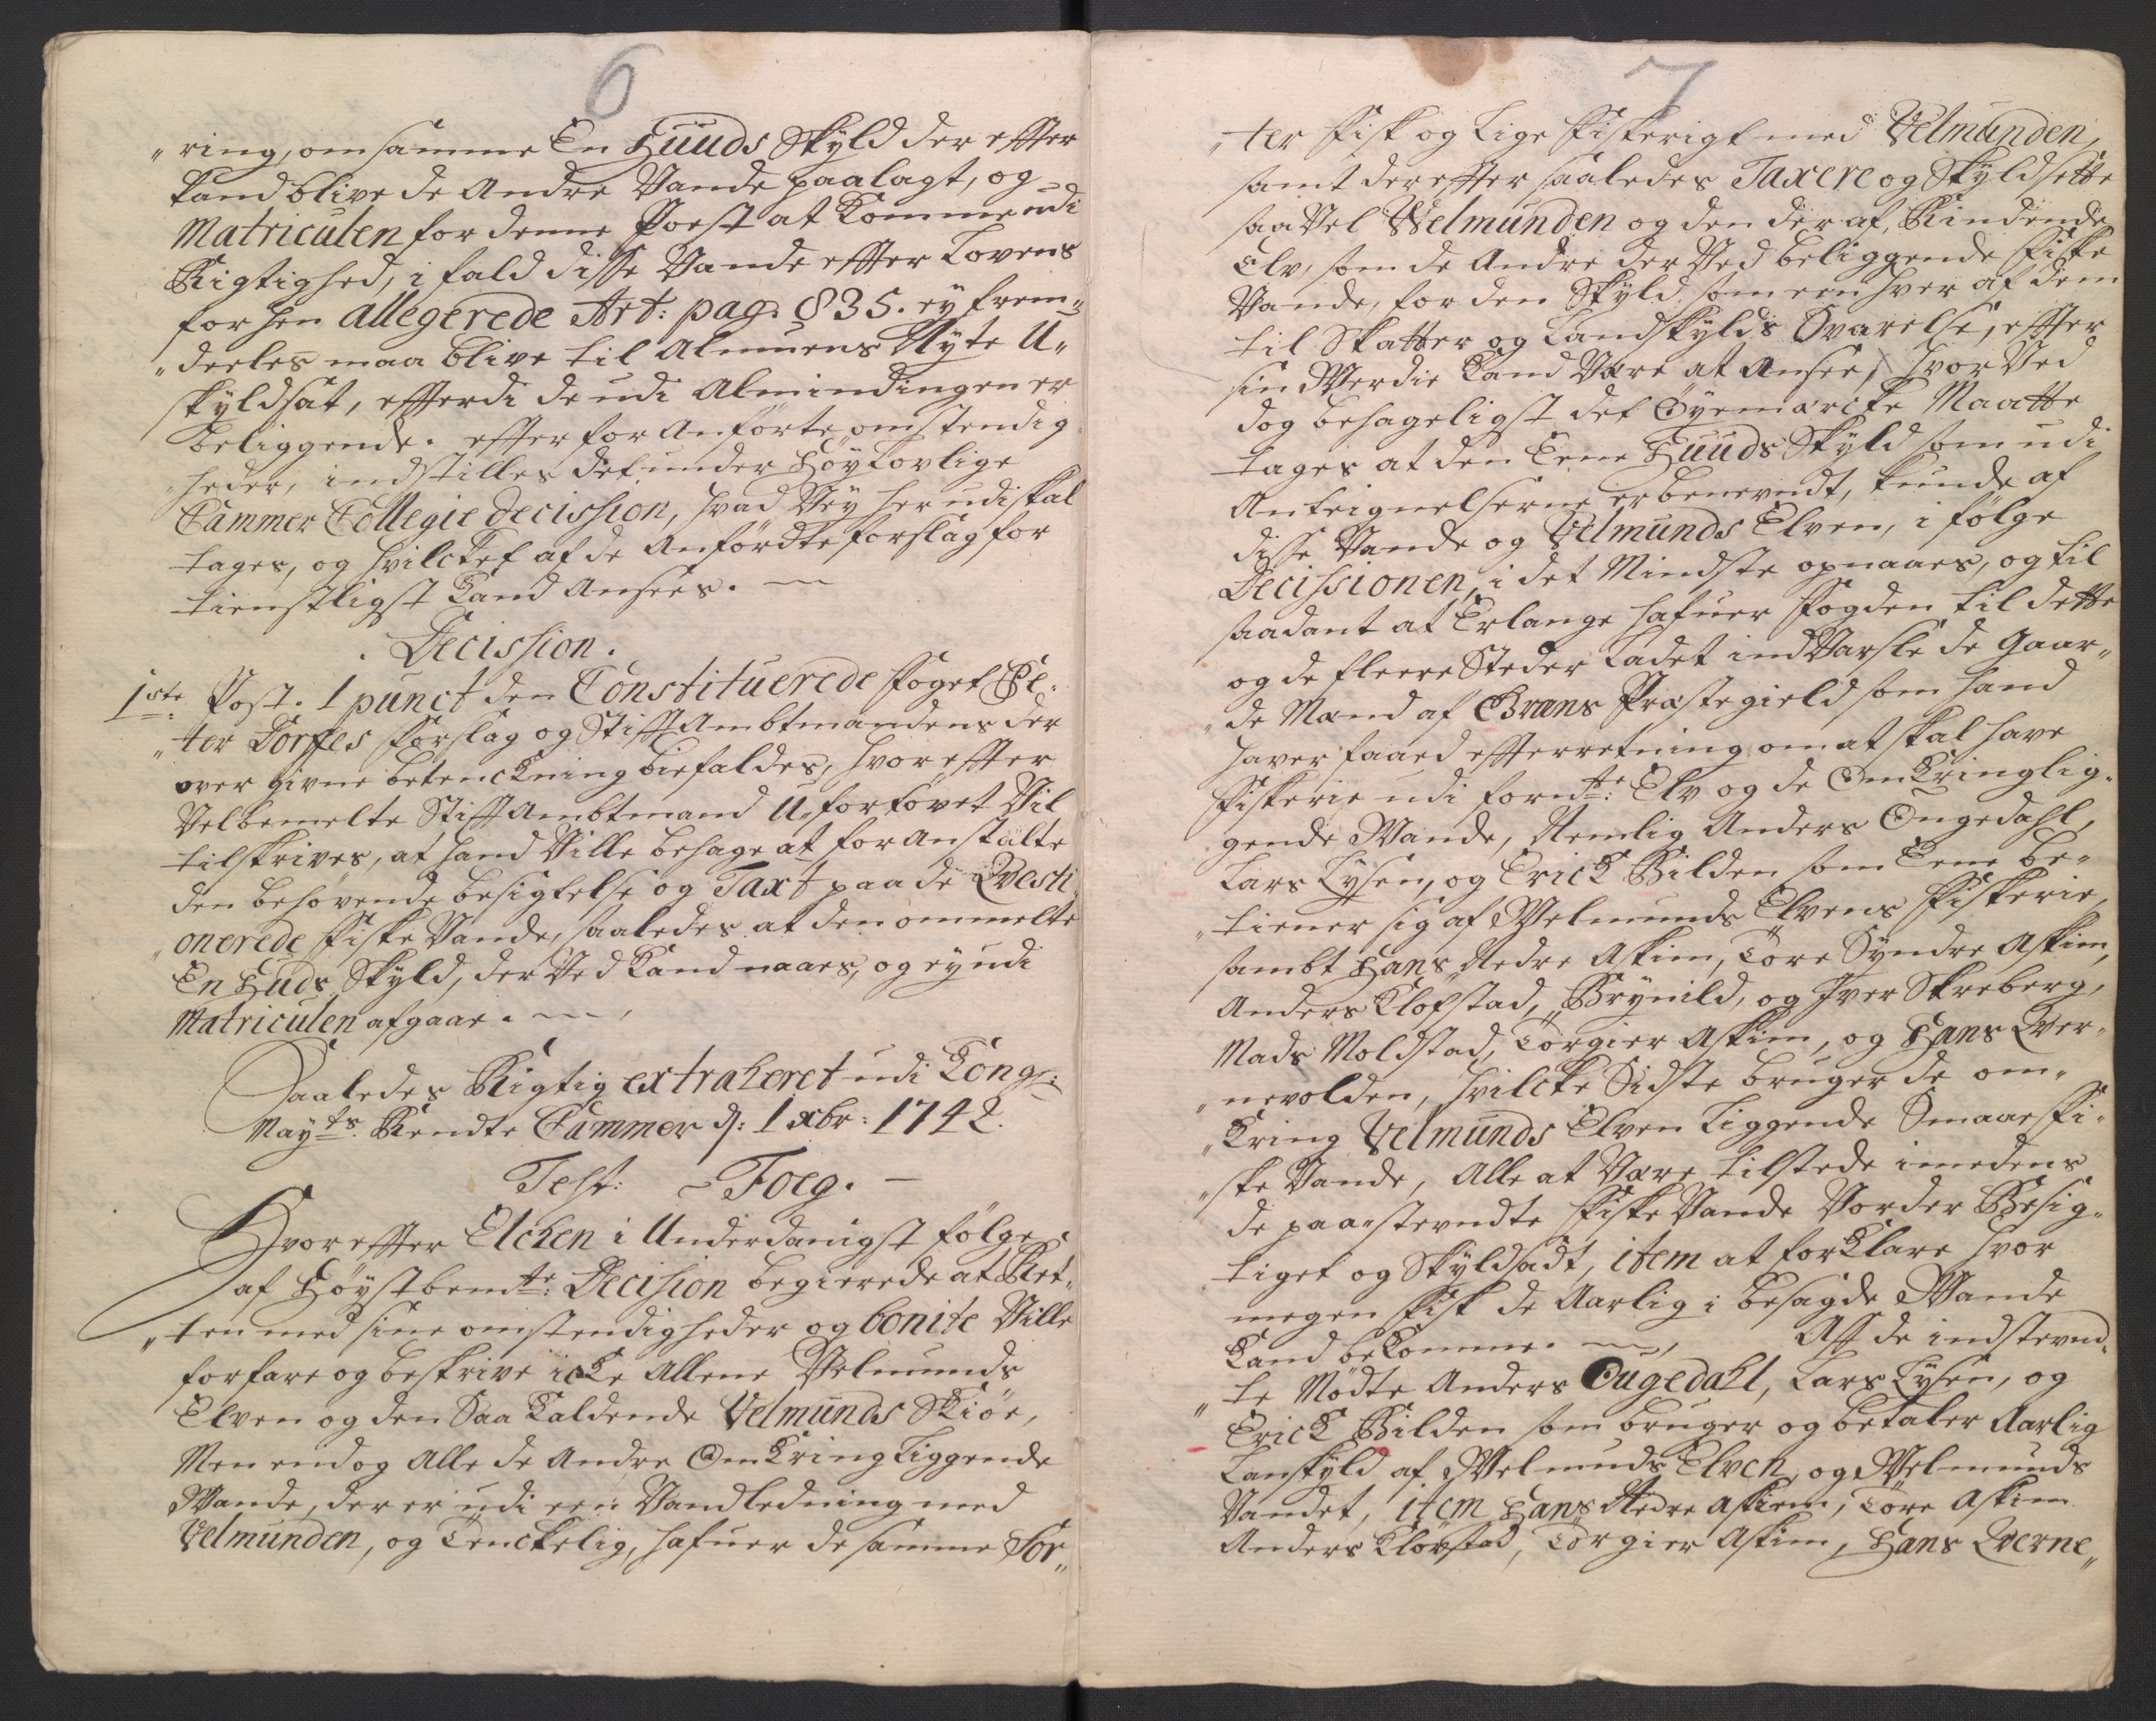 6
„ring, om samme En Huuds Skyld der effter
kand blive de Andre Vande paalagt, og
Matriculen for denne Poest at komme udi
Rigtighed, i fald disse Vande effter Lovens
forhen allegerede Art: pag: 835. ey frem„
„deeles maa blive til Almuens Nyte U„
skyldsat, efterdi de udi Almindingen er
beliggende. effter for Anførte omstendig„
„heder, indstilles det under Høylovlige
Cammer Collegie decission, hvad Vey her udi skal
tages, og hvilcket af de Anførdte forslag for
tienstligst kand Ansees.
Decission.
1ste Post. 1 punct den Constituerede Foget Pe„
„ter Dorffes forslag og Stifft Ambtmandens der
over givne betenckning biefaldes, hvor effter
Velbemelte Stifft Ambtmand U„fortøvet Vil
tilskrives, at hand Ville behage at for Anstalte
den behøvende besigtelse og Taxt paa de Qvesti„
„onerede Fiske Vande, saaledes at den ommelte
En Huds Skyld, der Ved kand naaes, og ey udi
Matriculen afgaae.
Saaledes Rigtig extraheret udi Kong:
Mayts: Rendte Cammer d: 1 xbr: 1742.
Test: Foeg.
Hvor effter Elchen i Underdanigst følge
af Høystbemte: Decision begierede at Ret„
„ten med sine omstendigheder og bonite Ville
forfare og beskrive icke Allene Velmunds
Elven og den Saa kaldende Velmunds Skiøe,
Men end og Alle de Andre Omkring liggende
Vande, der er udi een Vandledning med
Velmunden, og Tenckelig, hafuer de samme Sor„
7
„ter Fisk og lige Fiskerigt med Velmunden,
samt der effter saaledes Taxere og Skyldsette
saa Vel Velmunden og den der af, Rindende
Elv, som de Andre der Ved beliggende Fiske
Vande, for den Skyld som een hver af dem
til Skatter og Landskylds Svarelse, effter
sin Werdie kand Være at Ansee, hvor Ved
dog behageligst det Øyemercke Maatte
tages at den Eene Huuds Skyld som udi
Anteignelserne er benevndt, kunde af
disse Vande og Velmunds Elven, i følge
Decissionen, i det Mindste opnaaes, og til
saadant at Erlange hafuer Fogden til dette
og de fleere Steder Ladet ind Varsle de Gaar„
„de Mænd af Grans Præstegield som hand
haver faaed efterretning om at skal have
Fiskerie udi fornte: Elv og de Omkringlig„
gende Vande, Nemlig Anders Ongedahl,
Lars Lysen, og Erick Bilden som Eene be„
„tiener sig af Velmunds Elvens Fiskerie,
sambt Hans Nedre Askim, Tore Syndre Askim,
Anders Klofstad, Brynild, og Iver Skreberg,
Mads Moldstad, Torgier Askim, og Hans Qver„
„nevolden, hvilcke Sidste bruger de om„
„kring Velmunds Elven liggende Smaae Fi„
„ske Vande, Alle at Være tilstede imedens
de paa„stevndte Fiske Vande Vorder Besig„
tiget og Skyldsadt, item at forklare hvor
megen Fisk de Aarlig i besagde Vande
kand bekomme. Aff de indstevnd„
„te Mødte Anders Ougedahl, Lars Lysen, og
Erick Bilden som bruger og betaler Aarlig
Lanskyld af Velmunds Elven, og Velmunds
Vandet, item Hans Nedre Askiem, Tore Askim
Anders Kløvstad, Torgier Askim, Hans Qverne„